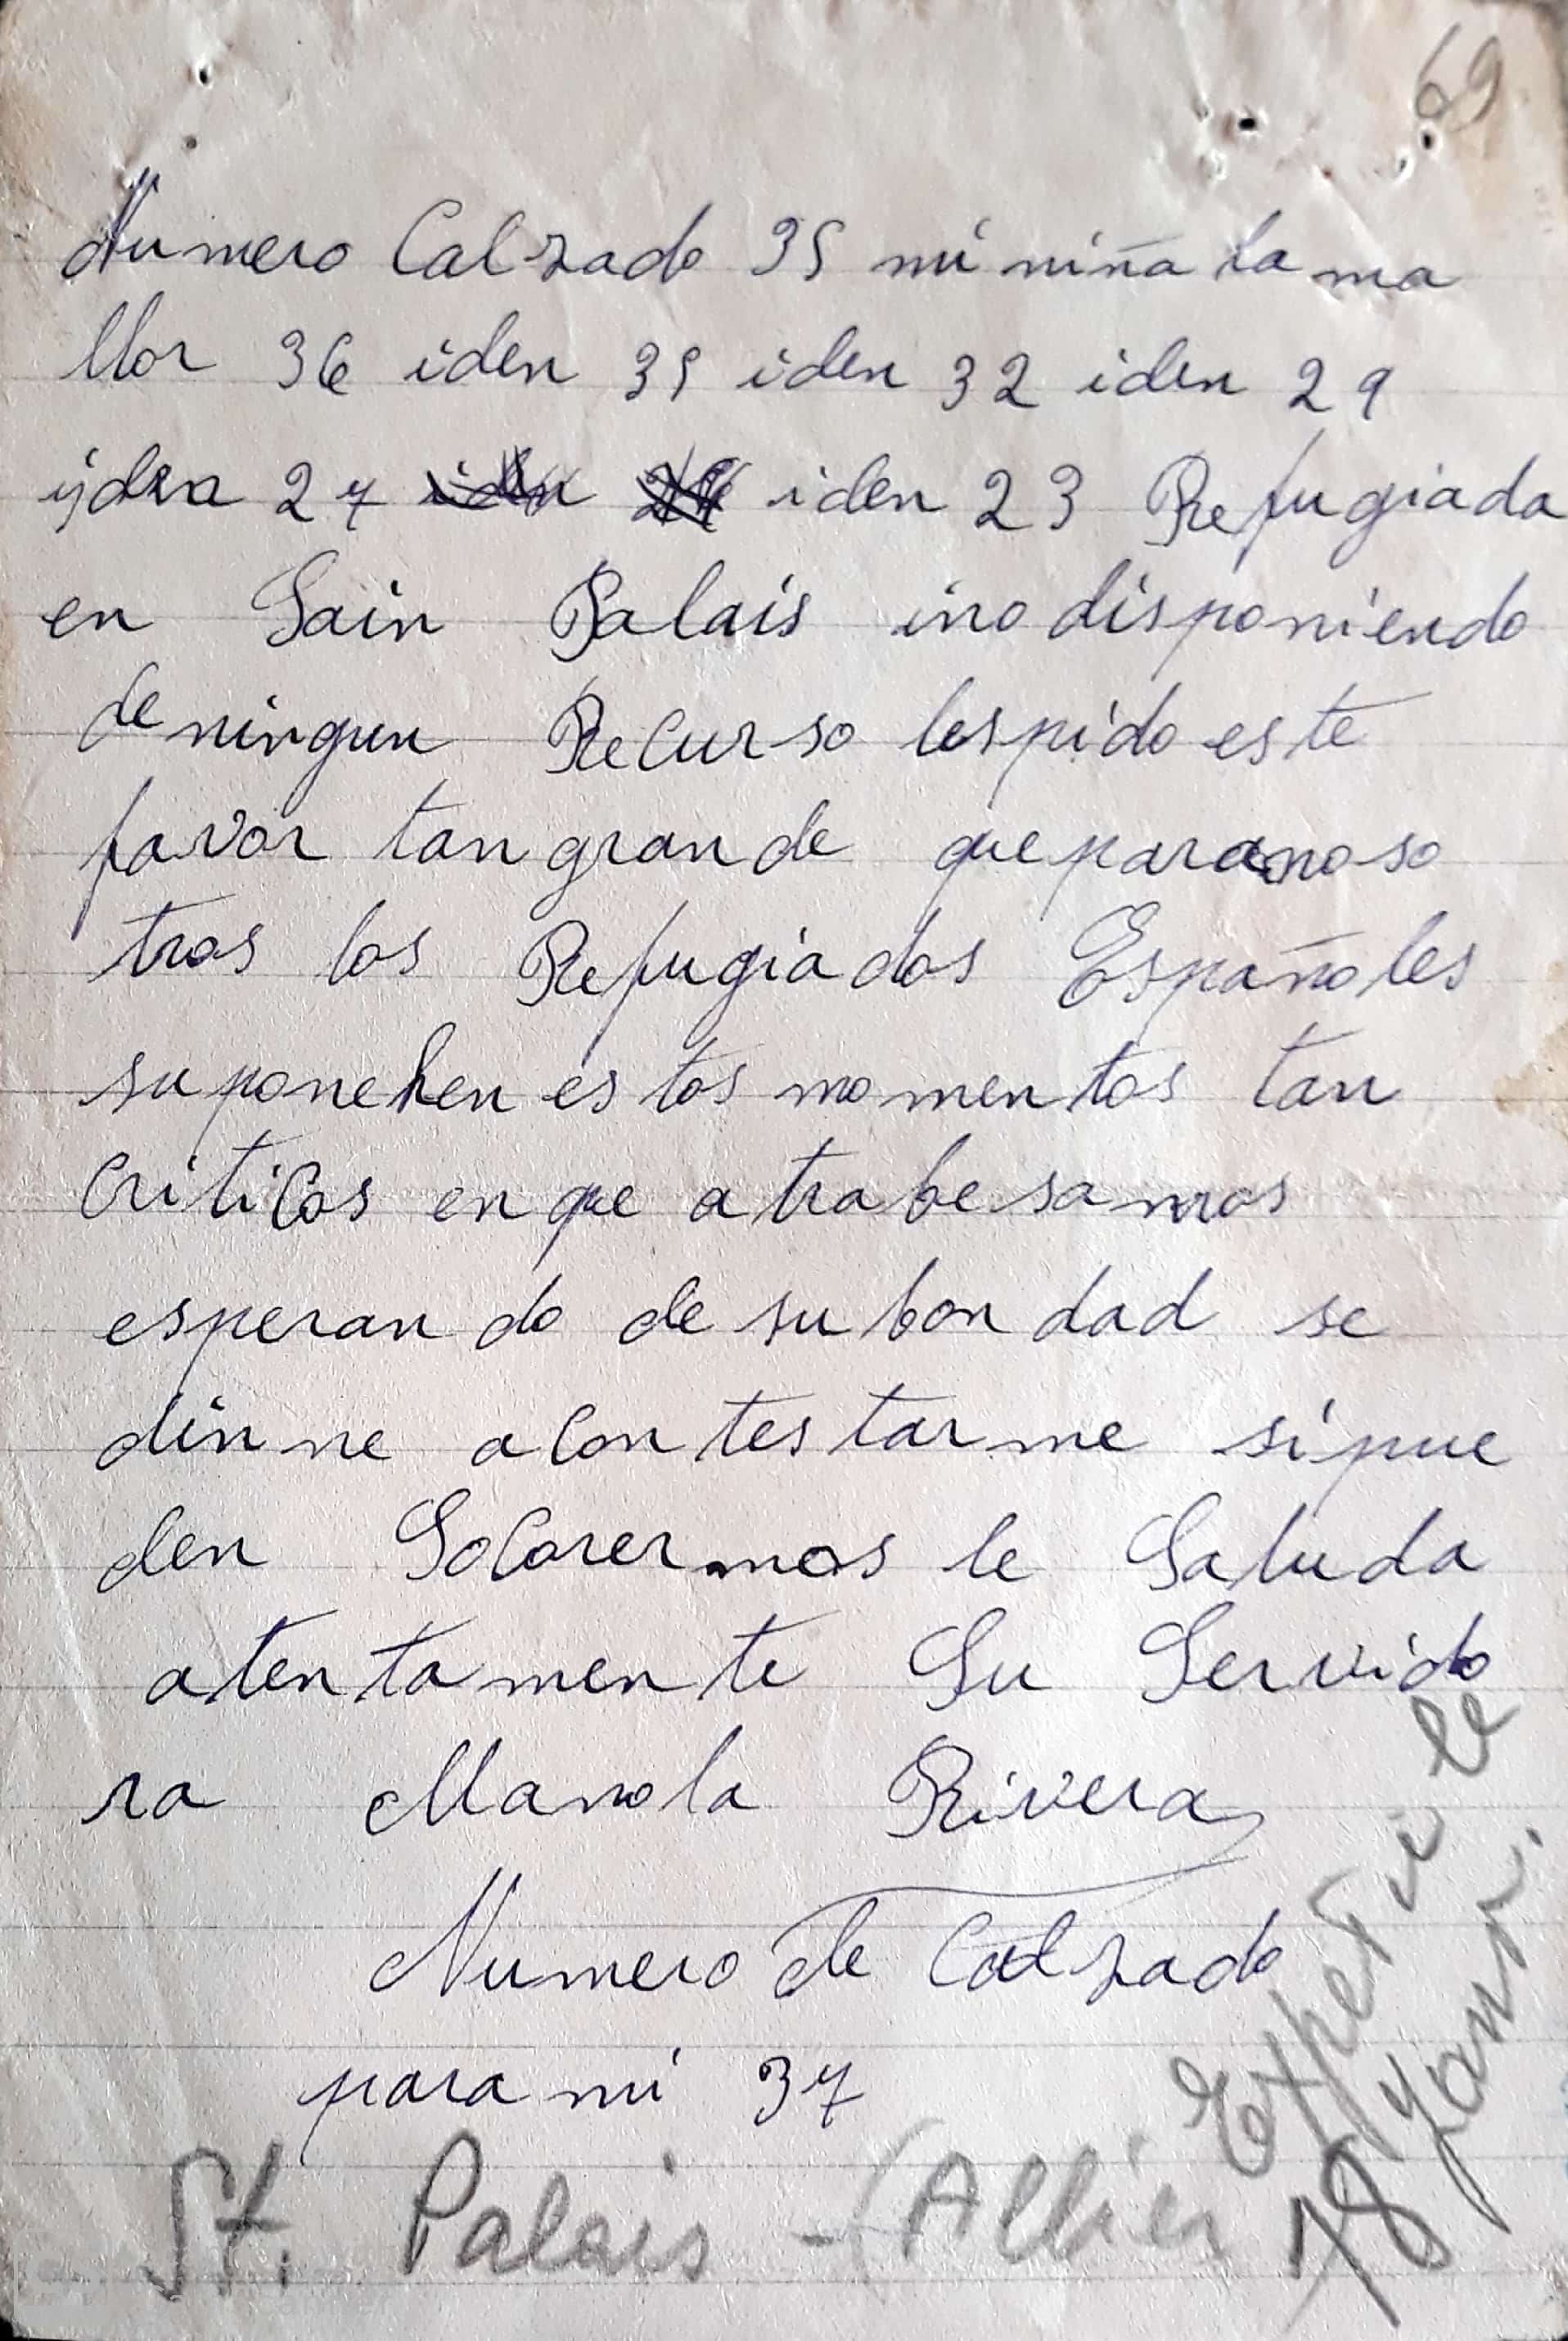 69
Numero Calzado 35 mi niña la ma
llor 36 iden 35 iden 32 iden 29
yden 27 iden iden 23 Refugiada
en Sain Palais ino disponiendo
de ningun Recurso les pido este
favor tan grande que para noso
tros los Refugiados Españoles
supone hen estos momentos tan
Criticos en que atrabesamos
esperando de su bondad se
dinne a Contestarme si pue
den Socorermos le Saluda
atentamente Su Servido
ra Manola Rivera
Numero de Calzado
para mi 37
St. Palais - (Allier
Expetié le
18 Janr.